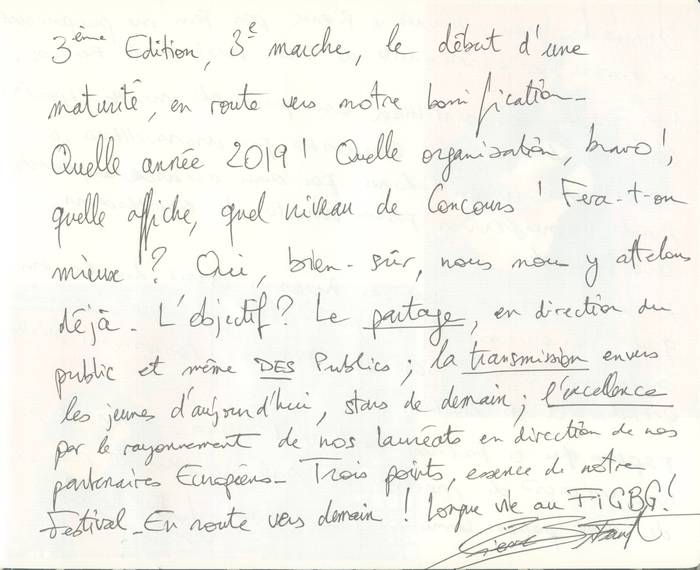 3ème Edition, 3e marche, le début d'une
maturité, en route vers notre bonification_
Quelle année 2019 ! Quelle organisation, bravo !,
quelle affiche, quel niveau de Concours ! Fera-t-on
mieux ? Oui, bien-sûr, nous nous y attelons
déjà_ L'objectif ? Le partage, en direction du
public et même DES Publics ; la transmission envers
les jeunes d'aujourd'hui, stars de demain ; l'excellence
par le rayonnement de nos lauréats en direction de nos
partenaires Européens_ Trois points, essence de notre
Festival_En route vers demain ! Longue vie au FiGBG !